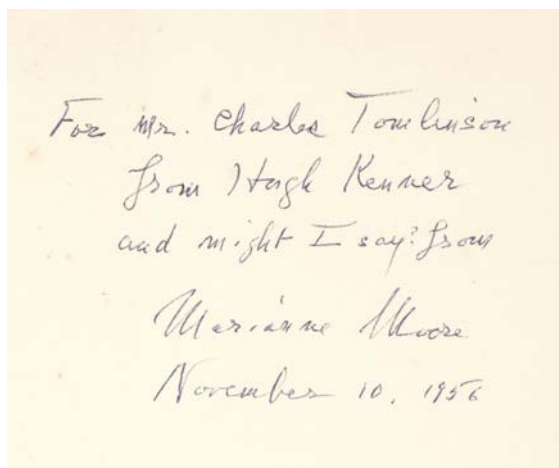 For Mr. Charles Tomlinson
from Hugh Kenner
and might I say? from
Marianne Moore
November 10, 1956